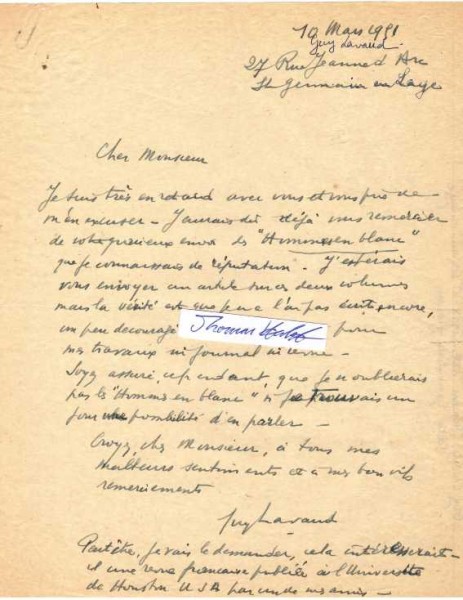 10 Mars 1951
Guy Lavaud
27 Rue Jeanne d'Arc
St Germain en Laye
Cher Monsieur
Je suis très en retard avec vous et vous prie de
m'en excuser - J'aurais dû déjà vous remercier
de votre précieux envoi des "Hommes en blanc"
que je connaissais de réputation. J'espérais
vous envoyer un article sur ces deux volumes
mais la vérité est que je ne l'ai pas écrit encore,
un peu découragé pour
mes travaux ni journal ni revue -
Soyez assuré, cependant, que je n'oublierais
pas les "Hommes en blanc" si je trouvais un
jour une possibilité d'en parler -
Croyez, cher Monsieur, à tous mes
meilleurs sentiments et à mes bien vifs
remerciements
Guy Lavaud
Peut-être, je vais le demander, cela intéresserait-
il une revue française publiée à l'Université
de Houston USA par un de mes amis -